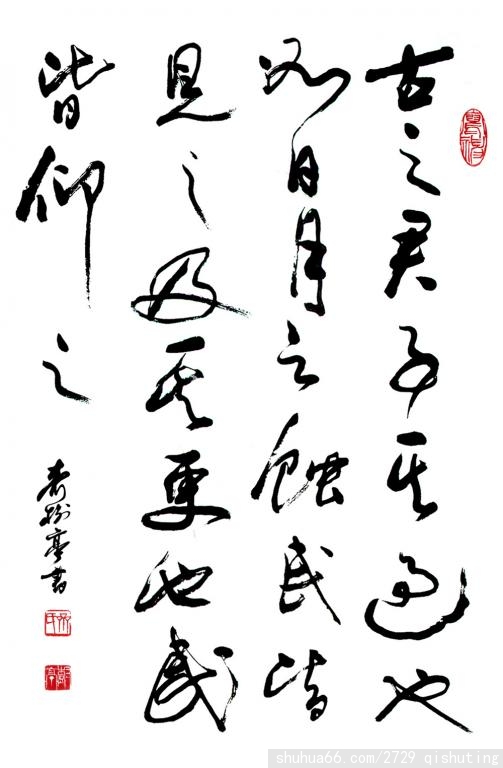 古之君子其過也
如日月之蝕民皆
見之及其更也民
皆仰之
齊樹亭書
shuhua66.com/2729 qishuting